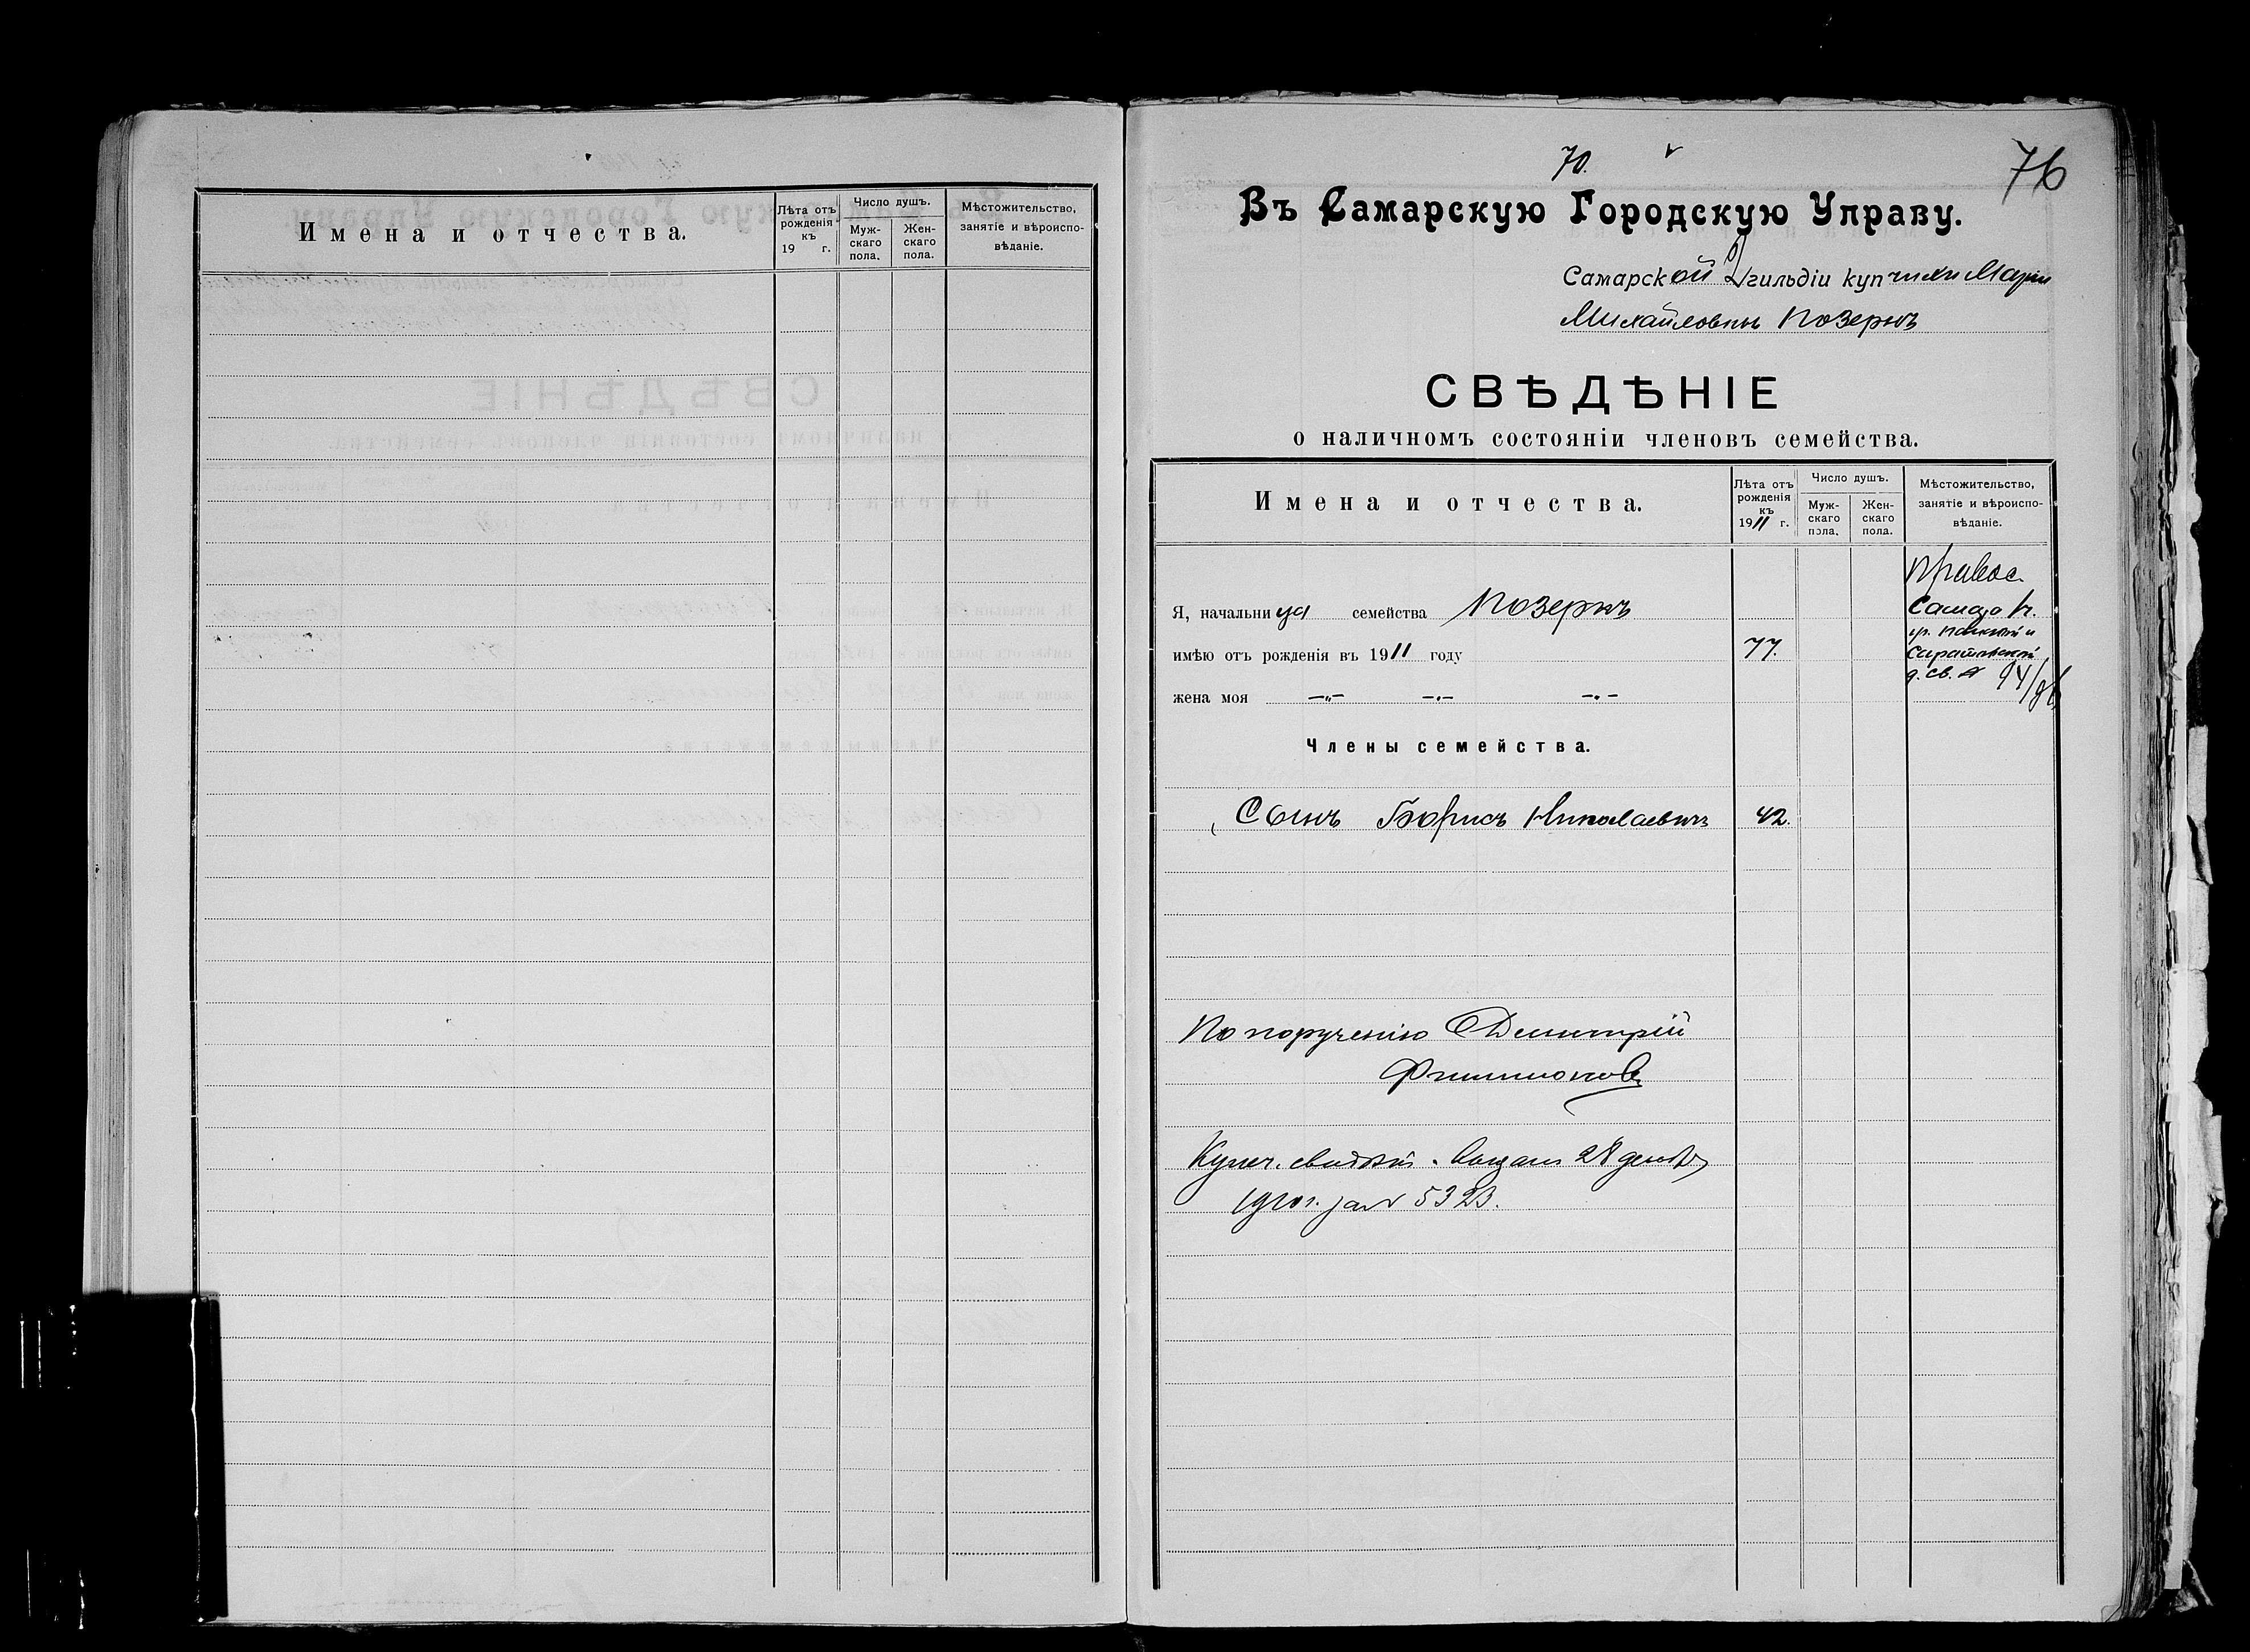 Имена и отчества.
Лѣта отъ рожденія къ 19 г.
Число душъ.
Мужскаго пола.
Женскаго пола.
Мѣстожительство, занятіе и вѣроисповѣданіе.
70.
76
Въ Самарскую Городскую Управу.
Самарской 2 гильдіи купчихи Маріи
Михайловны Позернъ
СВѢДѢНІЕ
о наличномъ состояніи членовъ семейства.
Имена и отчества.
Лѣта отъ рожденія къ 1911 г.
Число душъ.
Мужскаго пола.
Женскаго пола.
Мѣстожительство, занятіе и вѣроисповѣданіе.
Правос.
Я, начальница семейства Позернъ
Самара
имѣю отъ рожденія въ 1911 году 77.
уг. Панской и
Саратовской
д. св. № 94/96
жена моя —„— —„— —„—
Члены семейства.
Сынъ Борисъ Николаевичъ 42.
По порученію Димитрій
Филимоновъ
Купеч. свидѣт. 28 декабр
1910 г. за № 5323.